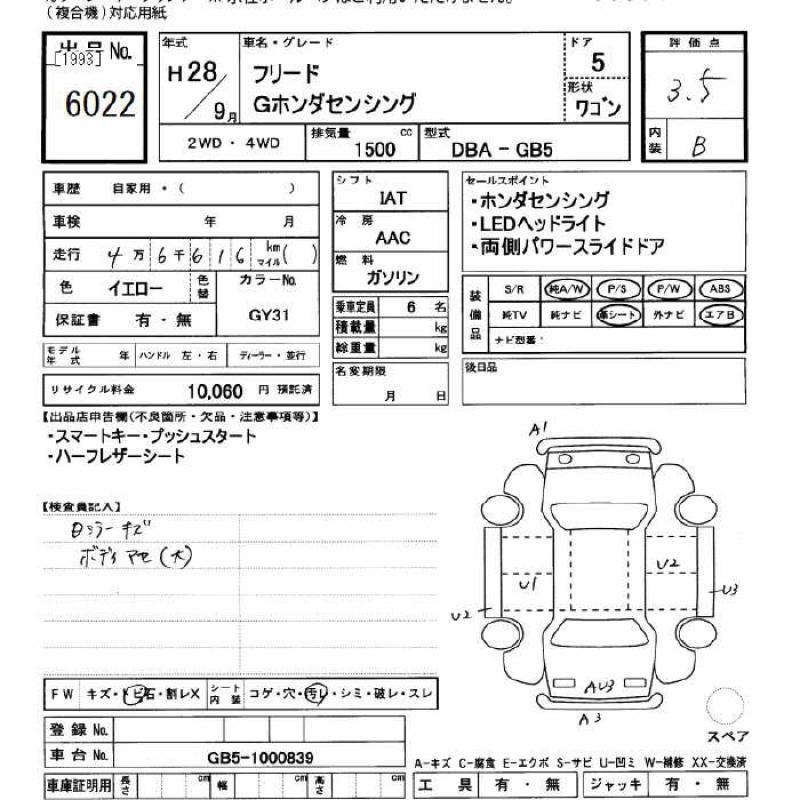 (複合機)対応用紙
出品No.
[1993]
6022
年式
H28/9月
車名・グレード
フリード
Gホンダセンシング
ドア
5
形状
ワゴン
評価点
3.5
内装
B
2WD・4WD
排気量 cc
1500
型式
DBA－GB5
車歴 自家用・( )
車検 年 月
走行 4万6千616 km マイル( )
色 イエロー 色替 カラーNo.
GY31
保証書 有・無
モデル年式 年 ハンドル 左・右 ディーラー・並行
リサイクル料金 10,060 円 預託済
シフト
IAT
冷房
AAC
燃料
ガソリン
乗車定員 6 名
積載量 kg
総重量 kg
名変期限
月 日
セールスポイント
・ホンダセンシング
・LEDヘッドライト
・両側パワースライドドア
装備品
S/R 純A/W P/S P/W ABS
純TV 純ナビ 革シート 外ナビ エアB
ナビ型番：
後日品
【出品店申告欄(不良箇所・欠品・注意事項等)】
・スマートキー・プッシュスタート
・ハーフレザーシート
【検査員記入】
ロミラーキズ
ボディアセ(大)
A1
U2
U1
U2
U3
AU3
A3
スペア
FW キズ・トビ石・割レX シート内装 コゲ・穴・汚レ・シミ・破レ・スレ
登録No.
車台No. GB5-1000839
車庫証明用 長さ cm 幅 cm 高さ cm
A-キズ C-腐食 E-エクボ S-サビ U-凹ミ W-補修 XX-交換済
工具 有・無 ジャッキ 有・無